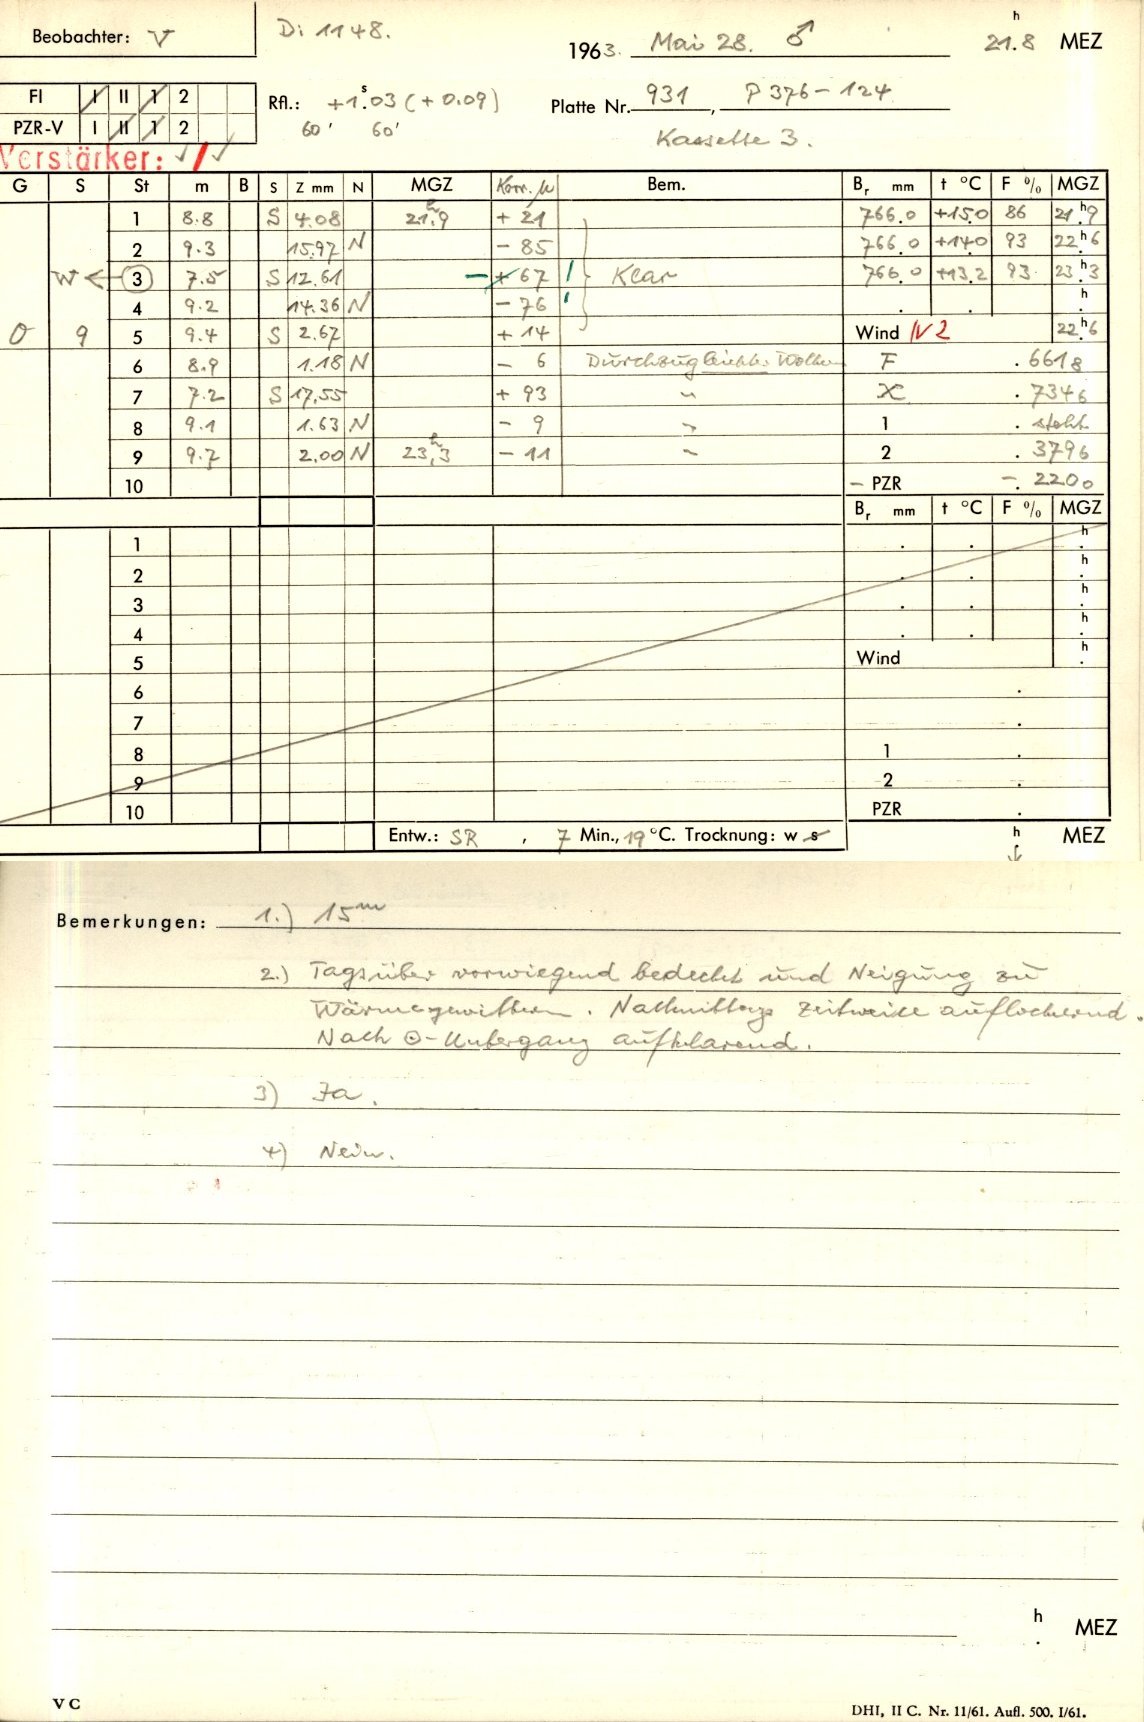 Beobachter: V
Di 1148.
1963. Mai 28. ♂
21.8 h MEZ
FI I II 1 2
PZR-V I II 1 2
Rfl.: +1.03 s (+0.09)
60' 60'
Platte Nr. 931, P 376-124
Kassette 3.
Verstärker: ✓/✓
G S St m B S Z mm N MGZ Korr. μ Bem. Br mm t °C F % MGZ
1 8.8 S 4.08 21h.9 + 21 766.0 +15.0 86 21h9
2 9.3 15.97 N - 85 766.0 +14.0 93 22h6
W ← 3 7.5 S 12.61 - + 67 ! Klar 766.0 +13.2 93 23h3
4 9.2 14.36 N - 76 . . h
0 9 5 9.4 S 2.67 + 14 Wind N 2 22h6
6 8.9 1.18 N - 6 Durchzug leichter Wolken F .6618
7 7.2 S 17.55 + 93 " .7346
8 9.1 1.63 N - 9 " 1 . steht
9 9.7 2.00 N 23h.3 - 11 " 2 .3796
10 - PZR -.2200
Br mm t °C F % MGZ
1 . . h
2 . . h
3 . . h
4 . . h
5 Wind h
6 .
7 .
8 1 .
9 2 .
10 PZR .
Entw.: SR, 7 Min., 19 °C. Trocknung: w s
h MEZ
Bemerkungen: 1.) 15m
2.) Tagsüber vorwiegend bedeckt und Neigung zu
Wärmegewittern. Nachmittags zeitweise auflockernd.
Nach ☉-Untergang aufklarend.
3) Ja.
4) Nein.
h
. MEZ
V C
DHI, II C. Nr. 11/61. Aufl. 500. I/61.